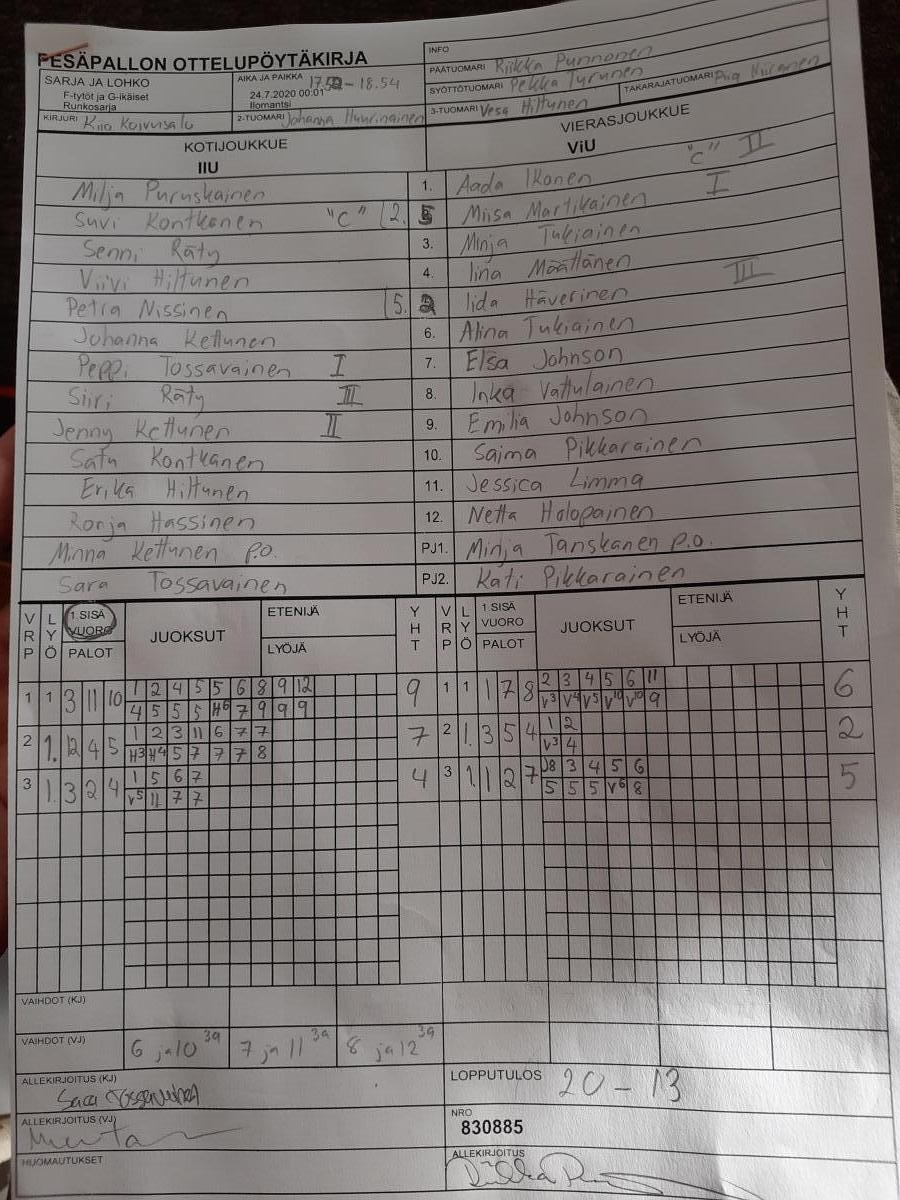 PESÄPALLON OTTELUPÖYTÄKIRJA
INFO
SARJA JA LOHKO
F-tytöt ja G-ikäiset
Runkosarja
AIKA JA PAIKKA 17.52 - 18.54
24.7.2020 00:01
Ilomantsi
PÄÄTUOMARI Riikka Punnonen
SYÖTTÖTUOMARI Pekka Turunen
TAKARAJATUOMARI
KIRJURI
2-TUOMARI Johanna
3-TUOMARI Vesa Hiltunen
KOTIJOUKKUE
IIU
VIERASJOUKKUE
ViU
Milja Puruskainen 1. Aada Ikonen "C" II
Suvi Kontkanen "C" 2. Miisa Martikainen I
Senni Räty 3. Minja Tukiainen
Viivi Hiltunen 4. Iina Määttänen
Petra Nissinen 5. Iida Häverinen III
Johanna Kettunen 6. Alina Tukiainen
Peppi Tossavainen I 7. Elsa Johnson
Siiri Räty III 8. Inka Vattulainen
Jenny Kettunen II 9. Emilia Johnson
Satu Kontkanen 10. Saima Pikkarainen
Erika Hiltunen 11. Jessica Limma
Ronja Hassinen 12. Netta Holopainen
Minna Kettunen p.o. PJ1. Minja Tanskanen p.o.
Sara Tossavainen PJ2. Kati Pikkarainen
VRP LYÖ 1 SISÄ VUORO PALOT JUOKSUT ETENIJÄ LYÖJÄ YHT VRP LYÖ 1 SISÄ VUORO PALOT JUOKSUT ETENIJÄ LYÖJÄ YHT
1 1 3 11 10 1 2 4 5 5 6 8 9 12 9 1 1 1 7 8 2 3 4 5 6 11 6
4 5 5 5 H6 7 9 9 9 V3 V4 V5 V10 V10 9
2 1. 12 4 5 1 2 3 11 6 7 7 7 2 1. 3 5 4 1 2 2
H3 H4 5 7 7 7 8 V3 4
3 1. 3 2 4 1 5 6 7 4 3 1. 1 2 7 J8 3 4 5 6 5
V5 11 7 7 5 5 5 V6 8
VAIHDOT (KJ)
VAIHDOT (VJ) 6 ja 10 3a 7 ja 11 3a 8 ja 12 3a
ALLEKIRJOITUS (KJ) Sara Tossavainen
LOPPUTULOS 20 - 13
ALLEKIRJOITUS (VJ)
NRO
830885
HUOMAUTUKSET
ALLEKIRJOITUS